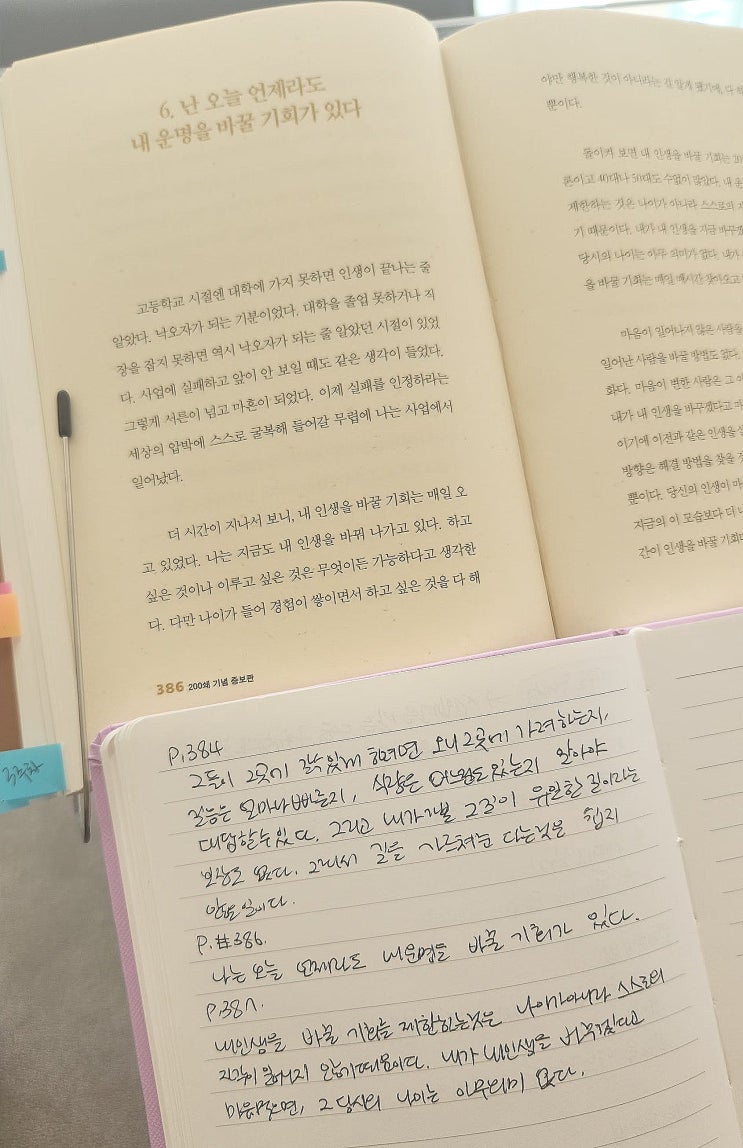 6. 난 오늘 언제라도
내 운명을 바꿀 기회가 있다
고등학교 시절엔 대학에 가지 못하면 인생이 끝나는 줄
알았다. 낙오자가 되는 기분이었다. 대학을 졸업 못하거나 직
장을 잡지 못하면 역시 낙오자가 되는 줄 알았던 시절이 있었
다. 사업에 실패하고 앞이 안 보일 때도 같은 생각이 들었다.
그렇게 서른이 넘고 마흔이 되었다. 이제 실패를 인정하라는
세상의 압박에 스스로 굴복해 들어갈 무렵에 나는 사업에서
일어났다.
더 시간이 지나서 보니, 내 인생을 바꿀 기회는 매일 오
고 있었다. 나는 지금도 내 인생을 바꿔 나가고 있다. 하고
싶은 것이나 이루고 싶은 것은 무엇이든 가능하다고 생각한
다. 다만 나이가 들어 경험이 쌓이면서 하고 싶은 것을 다 해
386 200쇄 기념 증보판
야만 행복한 것이 아니라는 걸 알게 됐기에, 다 하
뿐이다.
돌이켜 보면 내 인생을 바꿀 기회는 20
론이고 40대나 50대도 수없이 많았다. 내 운
제한하는 것은 나이가 아니라 스스로의 지
기 때문이다. 내가 내 인생을 지금 바꾸겠
당신의 나이는 아무 의미가 없다. 내가
을 바꿀 기회는 매일 매시간 찾아오고
마음이 일어나지 않은 사람을
일어난 사람을 바꿀 방법도 없다.
화다. 마음이 변한 사람은 그 이
내가 내 인생을 바꾸겠다고 마
이기에 이전과 같은 인생을 살
방향은 해결 방법을 찾을 것
뿐이다. 당신의 인생이 마
지금의 이 모습보다 더 나
간이 인생을 바꿀 기회다
P.384
그들이 그곳에 갈수 있게 하려면 왜 그곳에 가려하는지,
걸음은 얼마나 빠른지, 식량은 여느정도 있는지 알아야
대답할수 있다. 그리고 내가 갈 그곳이 유일한 길이라는
보장도 없다. 그래서 길을 가르쳐준 다는것은 쉽지
않은 일이다.
P.#386.
나는 오늘 언제라도 내 운명을 바꿀 기회가 있다.
P.387.
내인생을 바꿀 기회를 제한하는것은 나이가아니라 스스로의
지각이 일어서지 않기 때문이다. 내가 내인생을 바꾸겠다고
마음먹으면, 그 당신의 나이는 아무의미 없다.